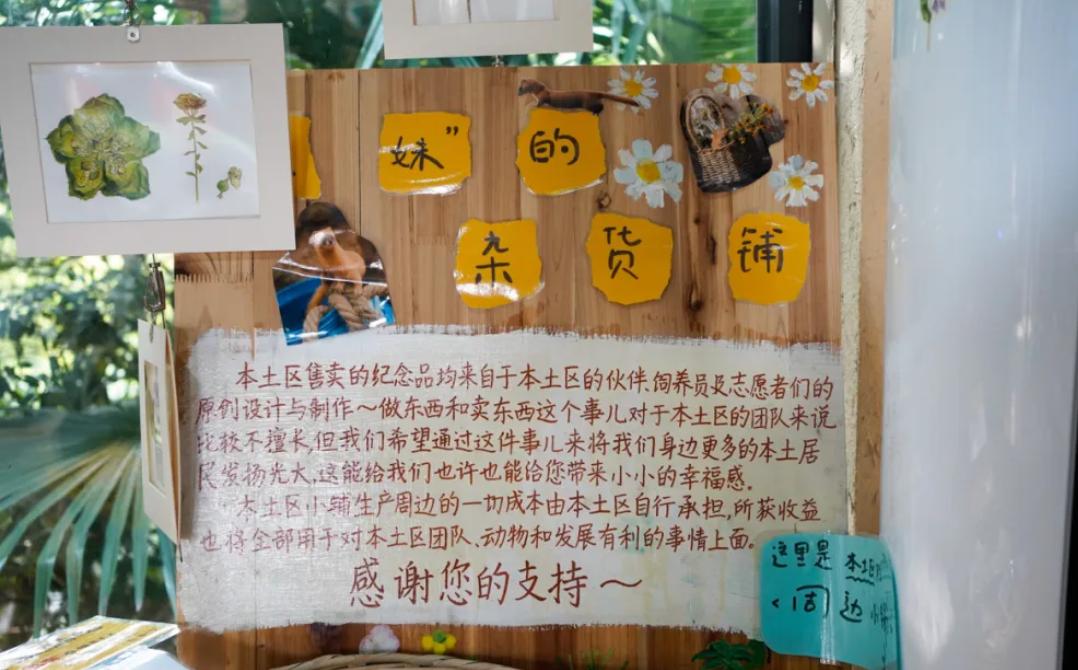 妹”的
杂货铺
本土区售卖的纪念品均来自于本土区的伙伴、饲养员及志愿者们的
原创设计与制作～做东西和卖东西这个事儿对于本土区的团队来说
比较不擅长,但我们希望通过这件事儿来将我们身边更多的本土居
民发扬光大,这能给我们也许也能给您带来小小的幸福感。
本土区小铺生产周边的一切成本由本土区自行承担,所获收益
也将全部用于对本土区团队、动物和发展有利的事情上面。
感谢您的支持～
这里是本土区
周边